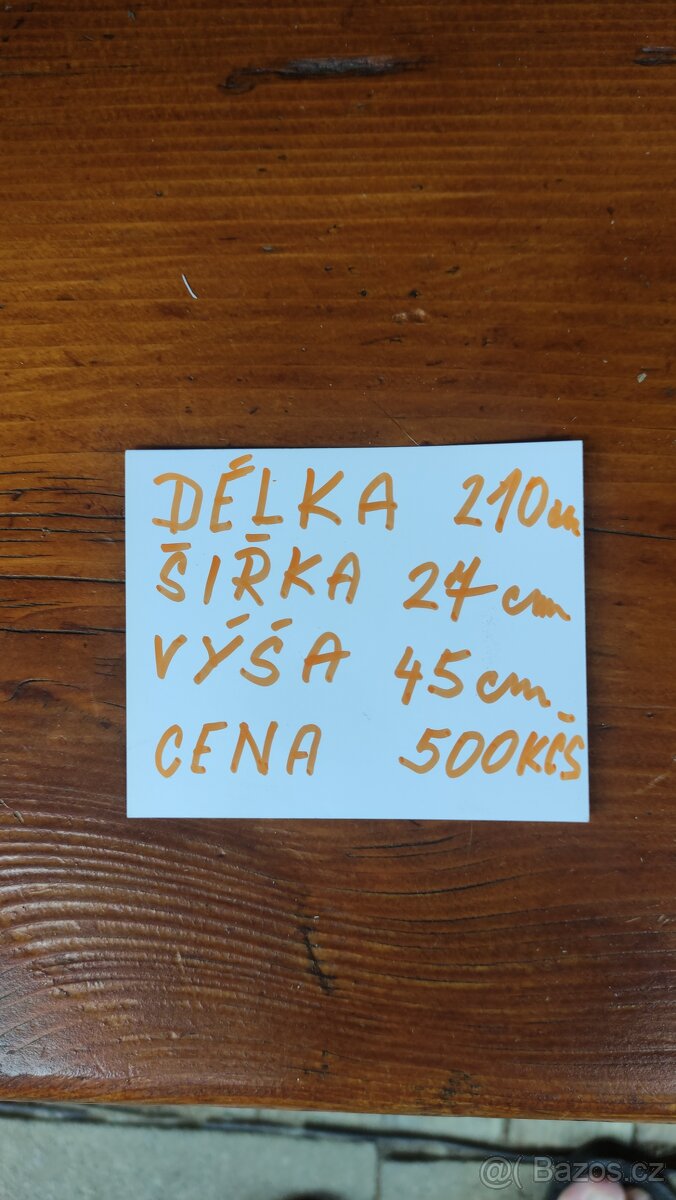 DÉLKA 210cm
ŠIŘKA 27cm
VÝŠA 45cm
CENA 500KČS
@( Bazos.cz